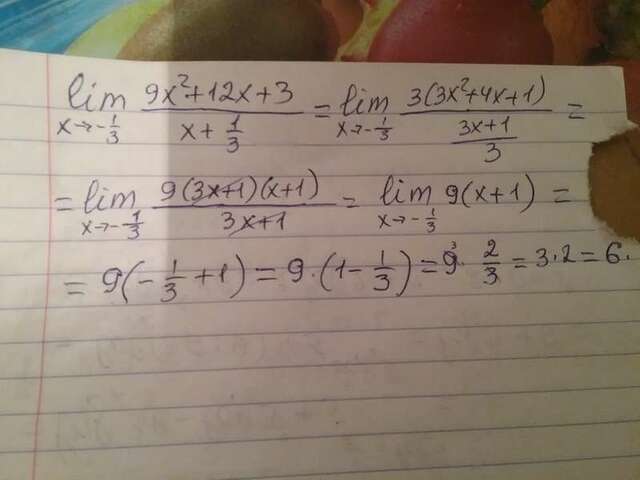 lim x→-1/3 (9x²+12x+3)/(x+1/3) = lim x→-1/3 3(3x²+4x+1)/((3x+1)/3) =
= lim x→-1/3 9(3x+1)(x+1)/(3x+1) = lim x→-1/3 9(x+1) =
= 9(-1/3+1) = 9·(1-1/3) = 9³·2/3 = 3·2 = 6.